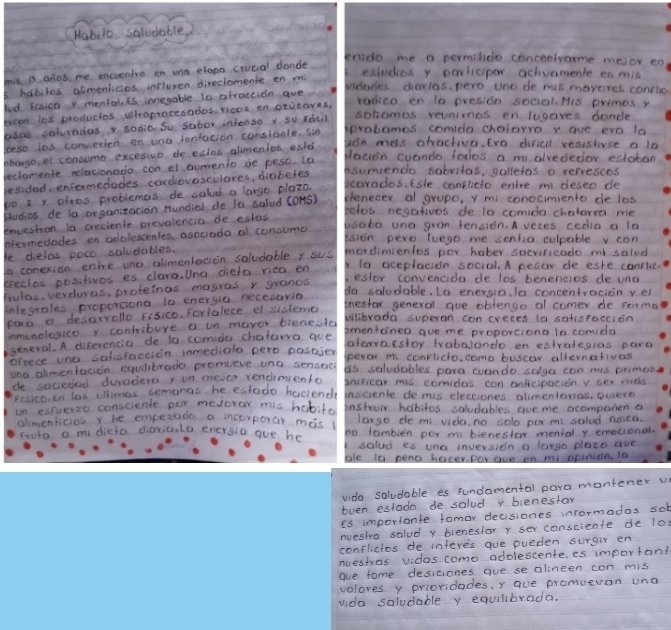 Habito Saludable
mis 15 años, me encuentro en una etapa crucial donde
s hábitos alimenticios influyen directamente en mi
lud física y mental. Es innegable la atracción que
ercen los productos ultraprocesados, ricos en azúcares,
asas saturadas y sodio. Su sabor intenso y su fácil
ceso los convierten en una tentación constante. Sin
mbargo, el consumo excesivo de estos alimentos está
rectamente relacionado con el aumento de peso, la
esidad, enfermedades cardiovasculares, diabetes
po 2 y otros problemas de salud a largo plazo.
studios de la organización Mundial de la Salud (OMS)
emuestran la creciente prevalencia de estas
nfermedades en adolescentes, asociada al consumo
de dietas poco saludables.
La conexión entre una alimentación saludable y sus
efectos positivos es clara. Una dieta rica en
frutas, verduras, proteínas magras y granos
integrales proporciona la energía necesaria
para o desarrollo físico. Fortalece el sistema
inmunologico y contribuye a un mayor bienesta
general. A diferencia de la comida chatarra que
ofrece una satisfacción inmediata pero pasajer
una alimentación equilibrada promueve una sensaci
de saciedad duradera y un mejor rendimiento
Físico. En las ultimas semanas he estado haciendo
un esfuerzo consciente por mejorar mis habito
alimenticios y he empezado a incorporar más
fruta a mi dieta diaria. La energía que he
enido me a permitido concentrarme mejor en
estudios y participar activamente en mis
vidades diarias, pero uno de mis mayores conflic
radica en la presión social. Mis primos y
soliamos reunirnos en lugares donde
probamos comida chatarra y que era la
ión más atractiva. Era difícil resistirse a la
tación cuando todos a mi alrededor estaban
nsumiendo sabritas, galletas o refrescos
ucarados. Este conflicto entre mi deseo de
tenecer al grupo, y mi conocimiento de los
ectos negativos de la comida chatarra me
usaba una gran tensión. A veces cedía a la
esión pero luego me sentía culpable y con
mordimientos por haber sacrificado mi salud
r la aceptación social. A pesar de este conflic
estoy convencida de los beneficios de una
da saludable. La energía, la concentración y el
nestar general que obtengo al comer de forma
uilibrada superan con creces la satisfacción
omentánea que me proporciona la comida
atarra. Estoy trabajando en estrategias para
perar mi conflicto, como buscar alternativas
ás saludables para cuando salga con mis primos,
anificar mis comidas con anticipación y ser más
nsciente de mis elecciones alimentarias. Quiero
onstruir hábitos saludables que me acompañen a
largo de mi vida, no solo por mi salud física,
no también por mi bienestar mental y emocional.
salud es una inversión a largo plazo que
ale la pena hacer. Por que en mi opinión, la
vida saludable es fundamental para mantener un
buen estado de salud y bienestar
Es importante tomar decisiones informadas sob
nuestra salud y bienestar y ser consciente de los
conflictos de interés que pueden surgir en
nuestras vidas. Como adolescente, es important
que tome desiciones que se alineen con mis
valores y prioridades, y que promuevan una
vida saludable y equilibrada.